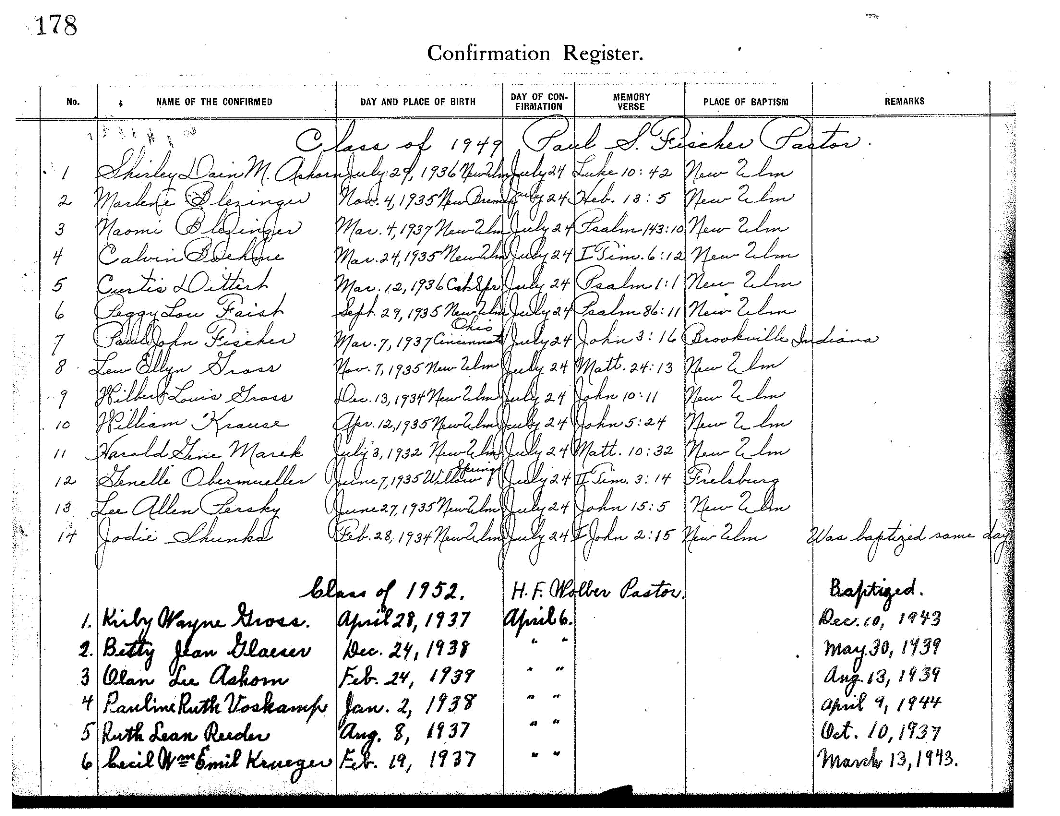 178
Confirmation Register.
No. NAME OF THE CONFIRMED DAY AND PLACE OF BIRTH DAY OF CON-FIRMATION MEMORY VERSE PLACE OF BAPTISM REMARKS
Class of 1949 Paul S. Fischer Pastor.
1 Shirley Dain M. Askom July 29, 1936 New Ulm July 24 Luke 10:42 New Ulm
2 Marlene Blezinger Nov. 4, 1935 New Brem July 24 Heb. 13:5 New Ulm
3 Naomi Blezinger Mar. 4, 1937 New Ulm July 24 Psalm 143:10 New Ulm
4 Calvin Boehme Mar. 24, 1935 New Ulm July 24 I Tim. 6:12 New Ulm
5 Curtis Dittert Mar. 12, 1936 Cat Spr July 24 Psalm 1:1 New Ulm
6 Peggy Lou Faist Sept. 29, 1935 New Ulm July 24 Psalm 86:11 New Ulm
7 Paul John Fischer Mar. 7, 1937 Cincinnati Ohio July 24 John 3:16 Brookville Indiana
8 Lew Ellyn Gross Nov. 7, 1935 New Ulm July 24 Matt. 24:13 New Ulm
9 Wilbert Louis Gross Dec. 13, 1934 New Ulm July 24 John 10:11 New Ulm
10 William Krause Apr. 12, 1935 New Ulm July 24 John 5:24 New Ulm
11 Harold Gene Marek July 3, 1932 New Ulm July 24 Matt. 10:32 New Ulm
12 Genelle Obermueller June 7, 1935 Willow Springs July 24 II Tim. 3:14 Frelsburg
13 Lee Allen Persky June 27, 1935 New Ulm July 24 John 15:5 New Ulm
14 Jodie Shunka Feb. 28, 1934 New Ulm July 24 I John 2:15 New Ulm Was baptized same day
Class of 1952. H. F. Wolber Pastor. Baptized.
1. Kirby Wayne Gross. April 28, 1937 April 6. Dec. 10, 1943
2. Betty Jean Glaeser Dec. 24, 1938 " " May 30, 1939
3 Olan Lee Askom Feb. 24, 1939 " " Aug. 13, 1939
4 Pauline Ruth Voskamp Jan. 2, 1938 " " April 9, 1944
5 Ruth Lean Reeder Aug. 8, 1937 " " Oct. 10, 1937
6 Cecil Wm Emil Krueger Feb. 19, 1937 " " March 13, 1943.